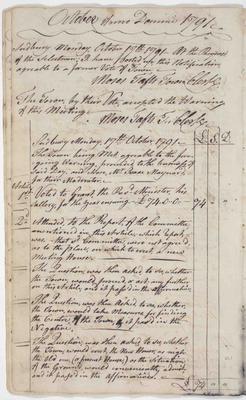 October Anno Domini 1791
Sudbury Monday, October 17th 1791. At the Request
of the Selectmen, I have posted up this Notification
agreable to a former Vote of Town.
Moses Taft Town Clerk
The Town, by their Vote, accepted the Warning
of this Meeting.
Moses Taft T. Clerk
£ S. D.
Sudbury Monday, 17th October 1791.
The Town being Met agreable to the fore
going Warning, proceeded to the Business of
said Day, and chose Mr. Isaac Maynard
as their Moderator.
Article
1st Voted to Grant the Revd Minister, his
Sallery, for the year ensuing £ 74,,0,,0 74
2d Attended, to the Report, of the Committee
mentioned in this Article, which Report,
was, that sd Committee were not agreed
as to the place, on which to erect, a new
Meeting House.
The Question was then asked to see, whether
the Town, would proceed, to act, any further
on this Article, and it passed in the affirmative.
The Question, was then Asked to see, whether
the Town, would take Measures, for finding
the Center, of the Town, & it passed in the
Negative.
The Question, was then asked, to see, whether
the Town, would erect, the New House, as nigh
the Old one (a present House) as the situation
of the Ground, would conveniently, admit,
and it passed in the affirmative.
£ 74